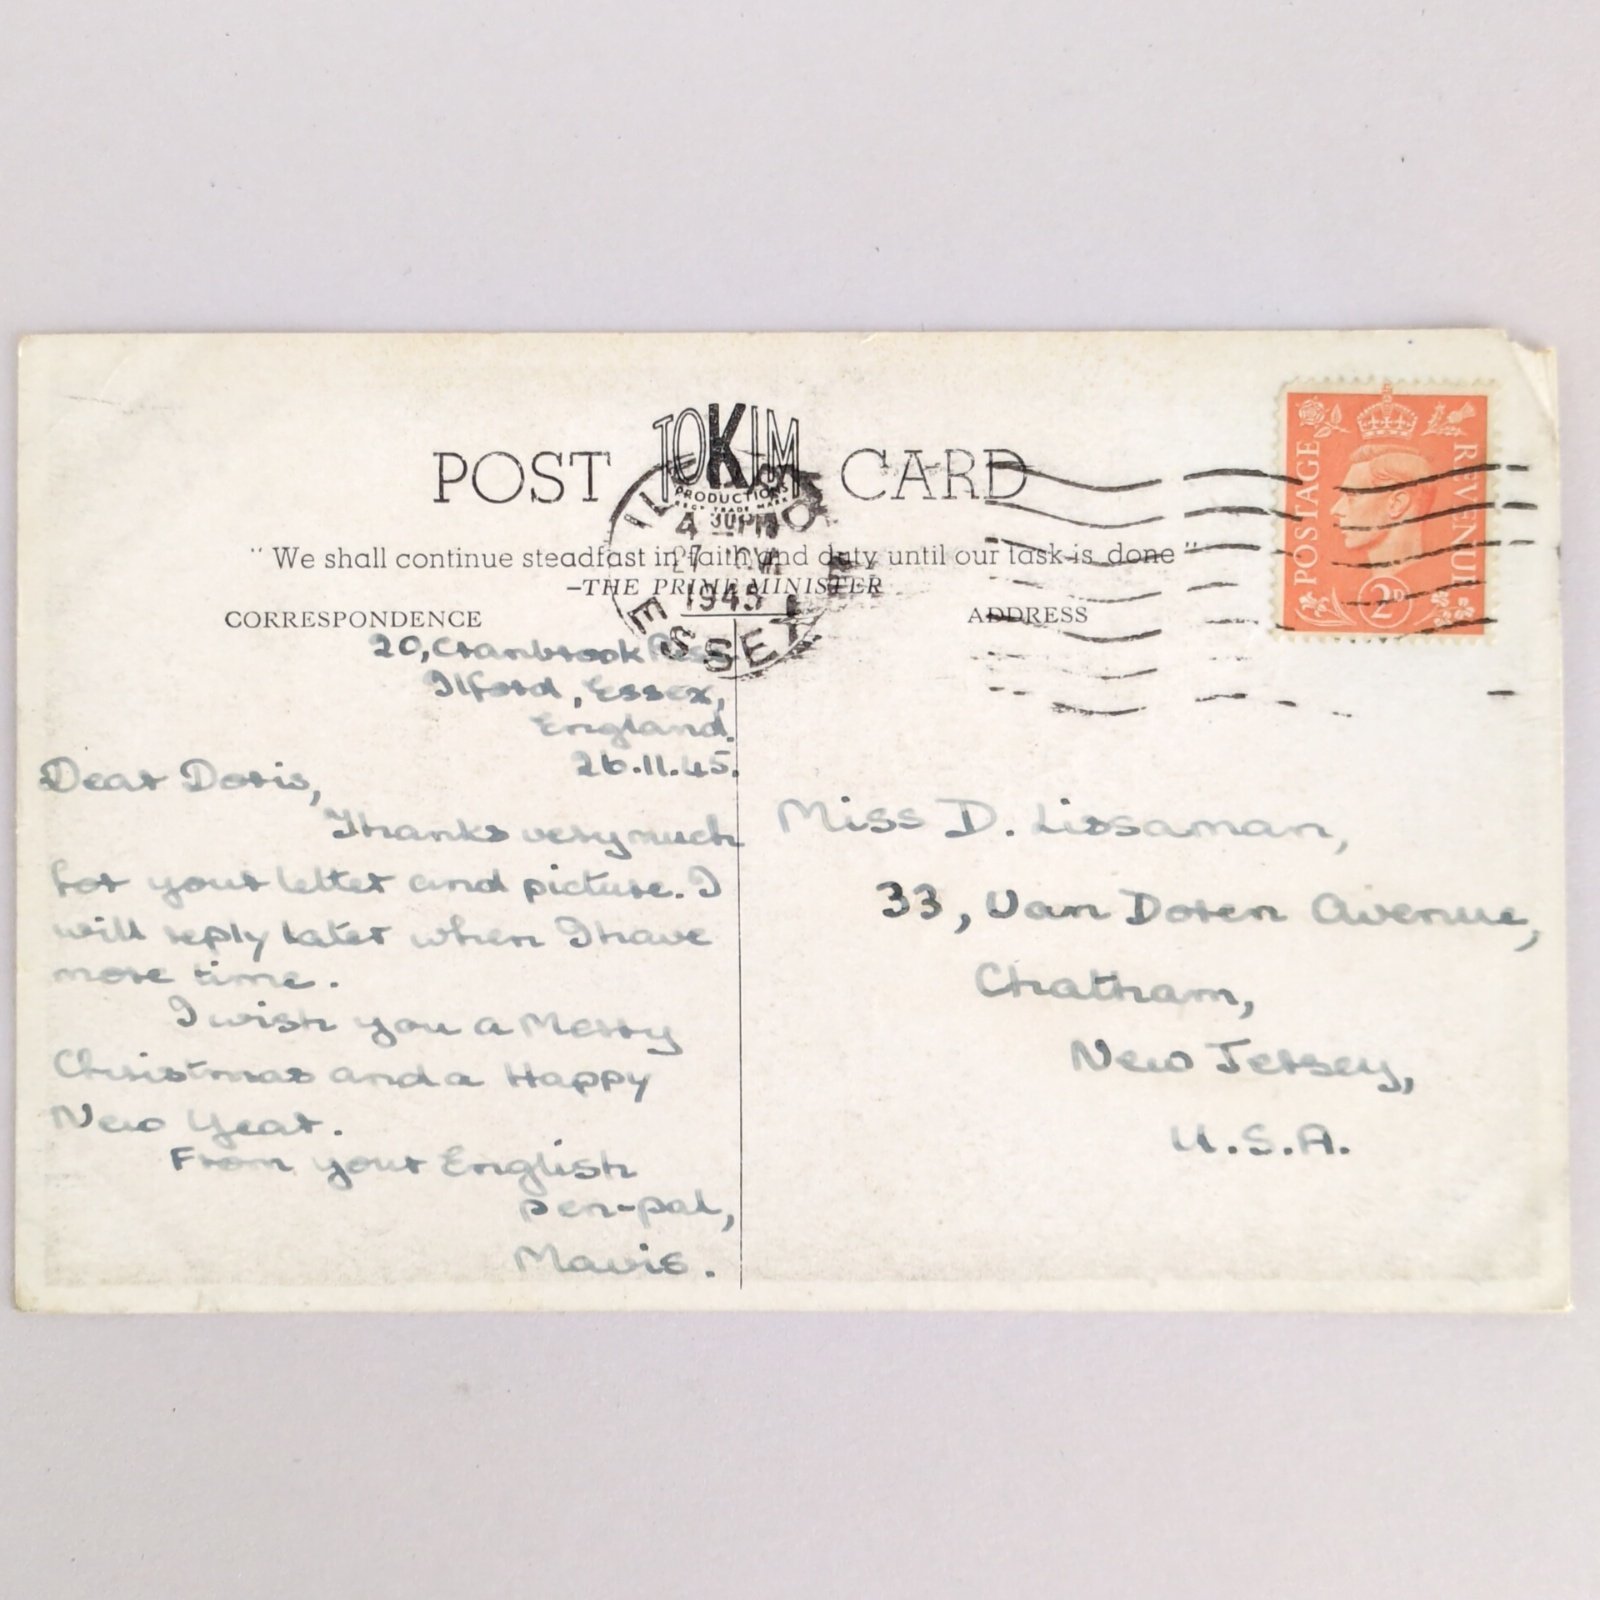 TOKIM
PRODUCTIONS
REGD TRADE MARK
POST CARD
4 30PM
27
1945
ESSEX
POSTAGE REVENUE
2D
" We shall continue steadfast in faith and duty until our task is done "
–THE PRIME MINISTER
CORRESPONDENCE
ADDRESS
20, Cranbrook
Ilford, Essex,
England.
26.11.45.
Dear Doris,
Thanks very much
for your letter and picture. I
will reply later when I have
more time.
I wish you a Merry
Christmas and a Happy
New Year.
From your English
pen-pal,
Mavis.
Miss D. Lissaman,
33, Van Doren Avenue,
Chatham,
New Jersey,
U.S.A.